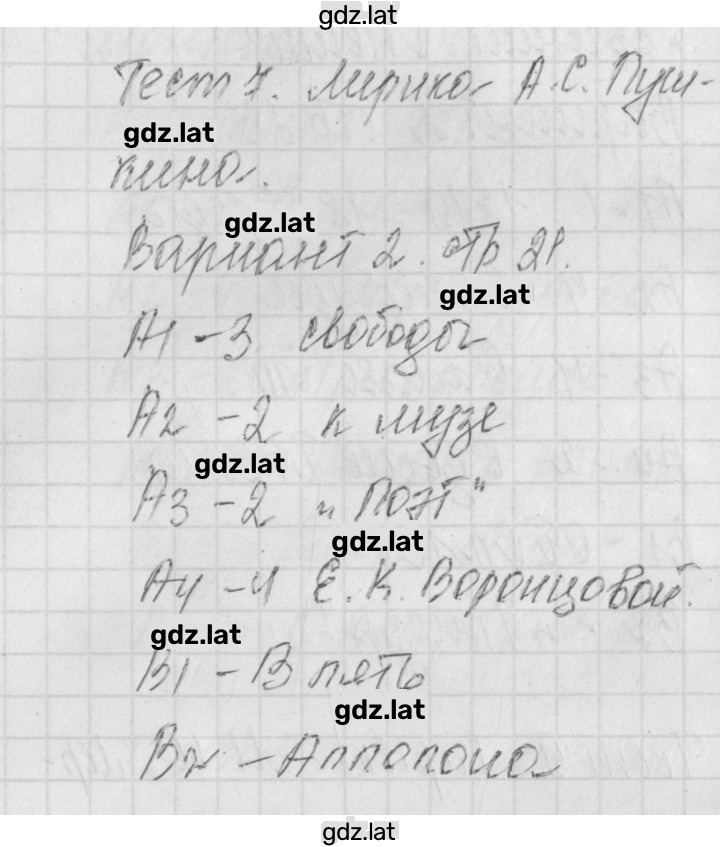 gdz.lat
Тест 7. Лирика А.С. Пуш-
gdz.lat
кина.
gdz.lat
Вариант 2. стр 21.
gdz.lat
А1 - 3 свободы
А2 - 2 к музе
gdz.lat
А3 - 2 „Поэт"
gdz.lat
А4 - 4 Е.К. Воронцовой.
gdz.lat
В1 - В пять
gdz.lat
В2 - Апполона
gdz.lat